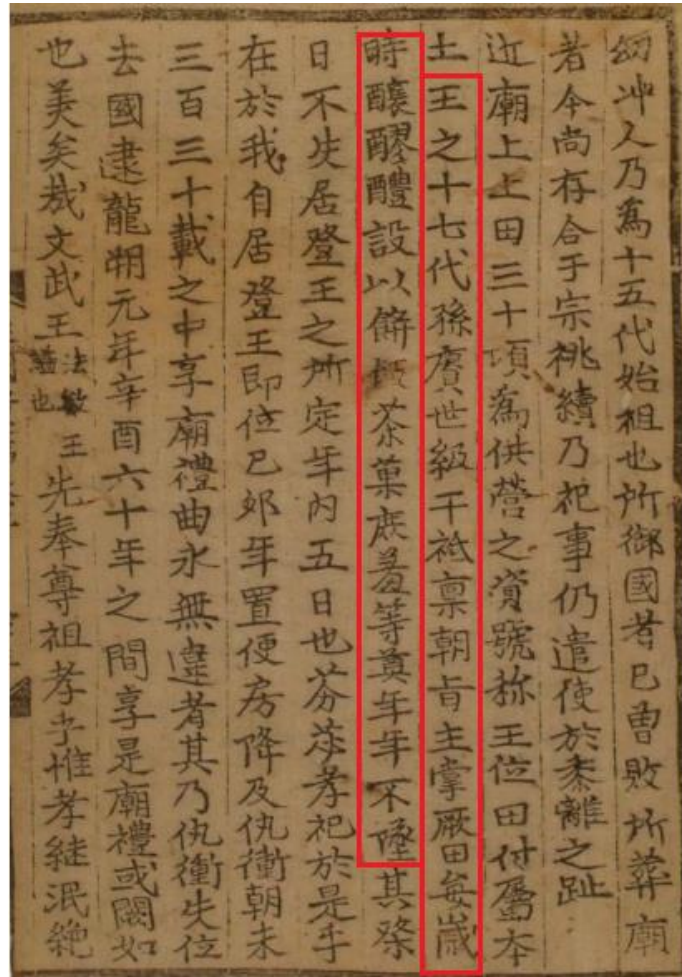 㓜冲人乃爲十五代始祖也所御國者已曽敗所葬廟
者今尚存合于宗祧續乃祀事仍遣使於黍離之趾
近廟上上田三十項爲供營之資號称王位田付屬本
土王之十七代孫賡世級干祗禀朝旨主掌厥田每歲
時釀醪醴設以餠飯茶菓庶羞等奠年年不墜其祭
日不失居登王之所定年內五日也芬苾孝祀於是乎
在於我自居登王即位己卯年置便房降及仇衝朝末
三百三十載之中享廟禮曲永無違者其乃仇衝失位
去國逮龍朔元年辛酉六十年之間享是廟禮或闕如
也美矣哉文武王法敏王謚也先奉尊祖孝乎惟孝継泯絶